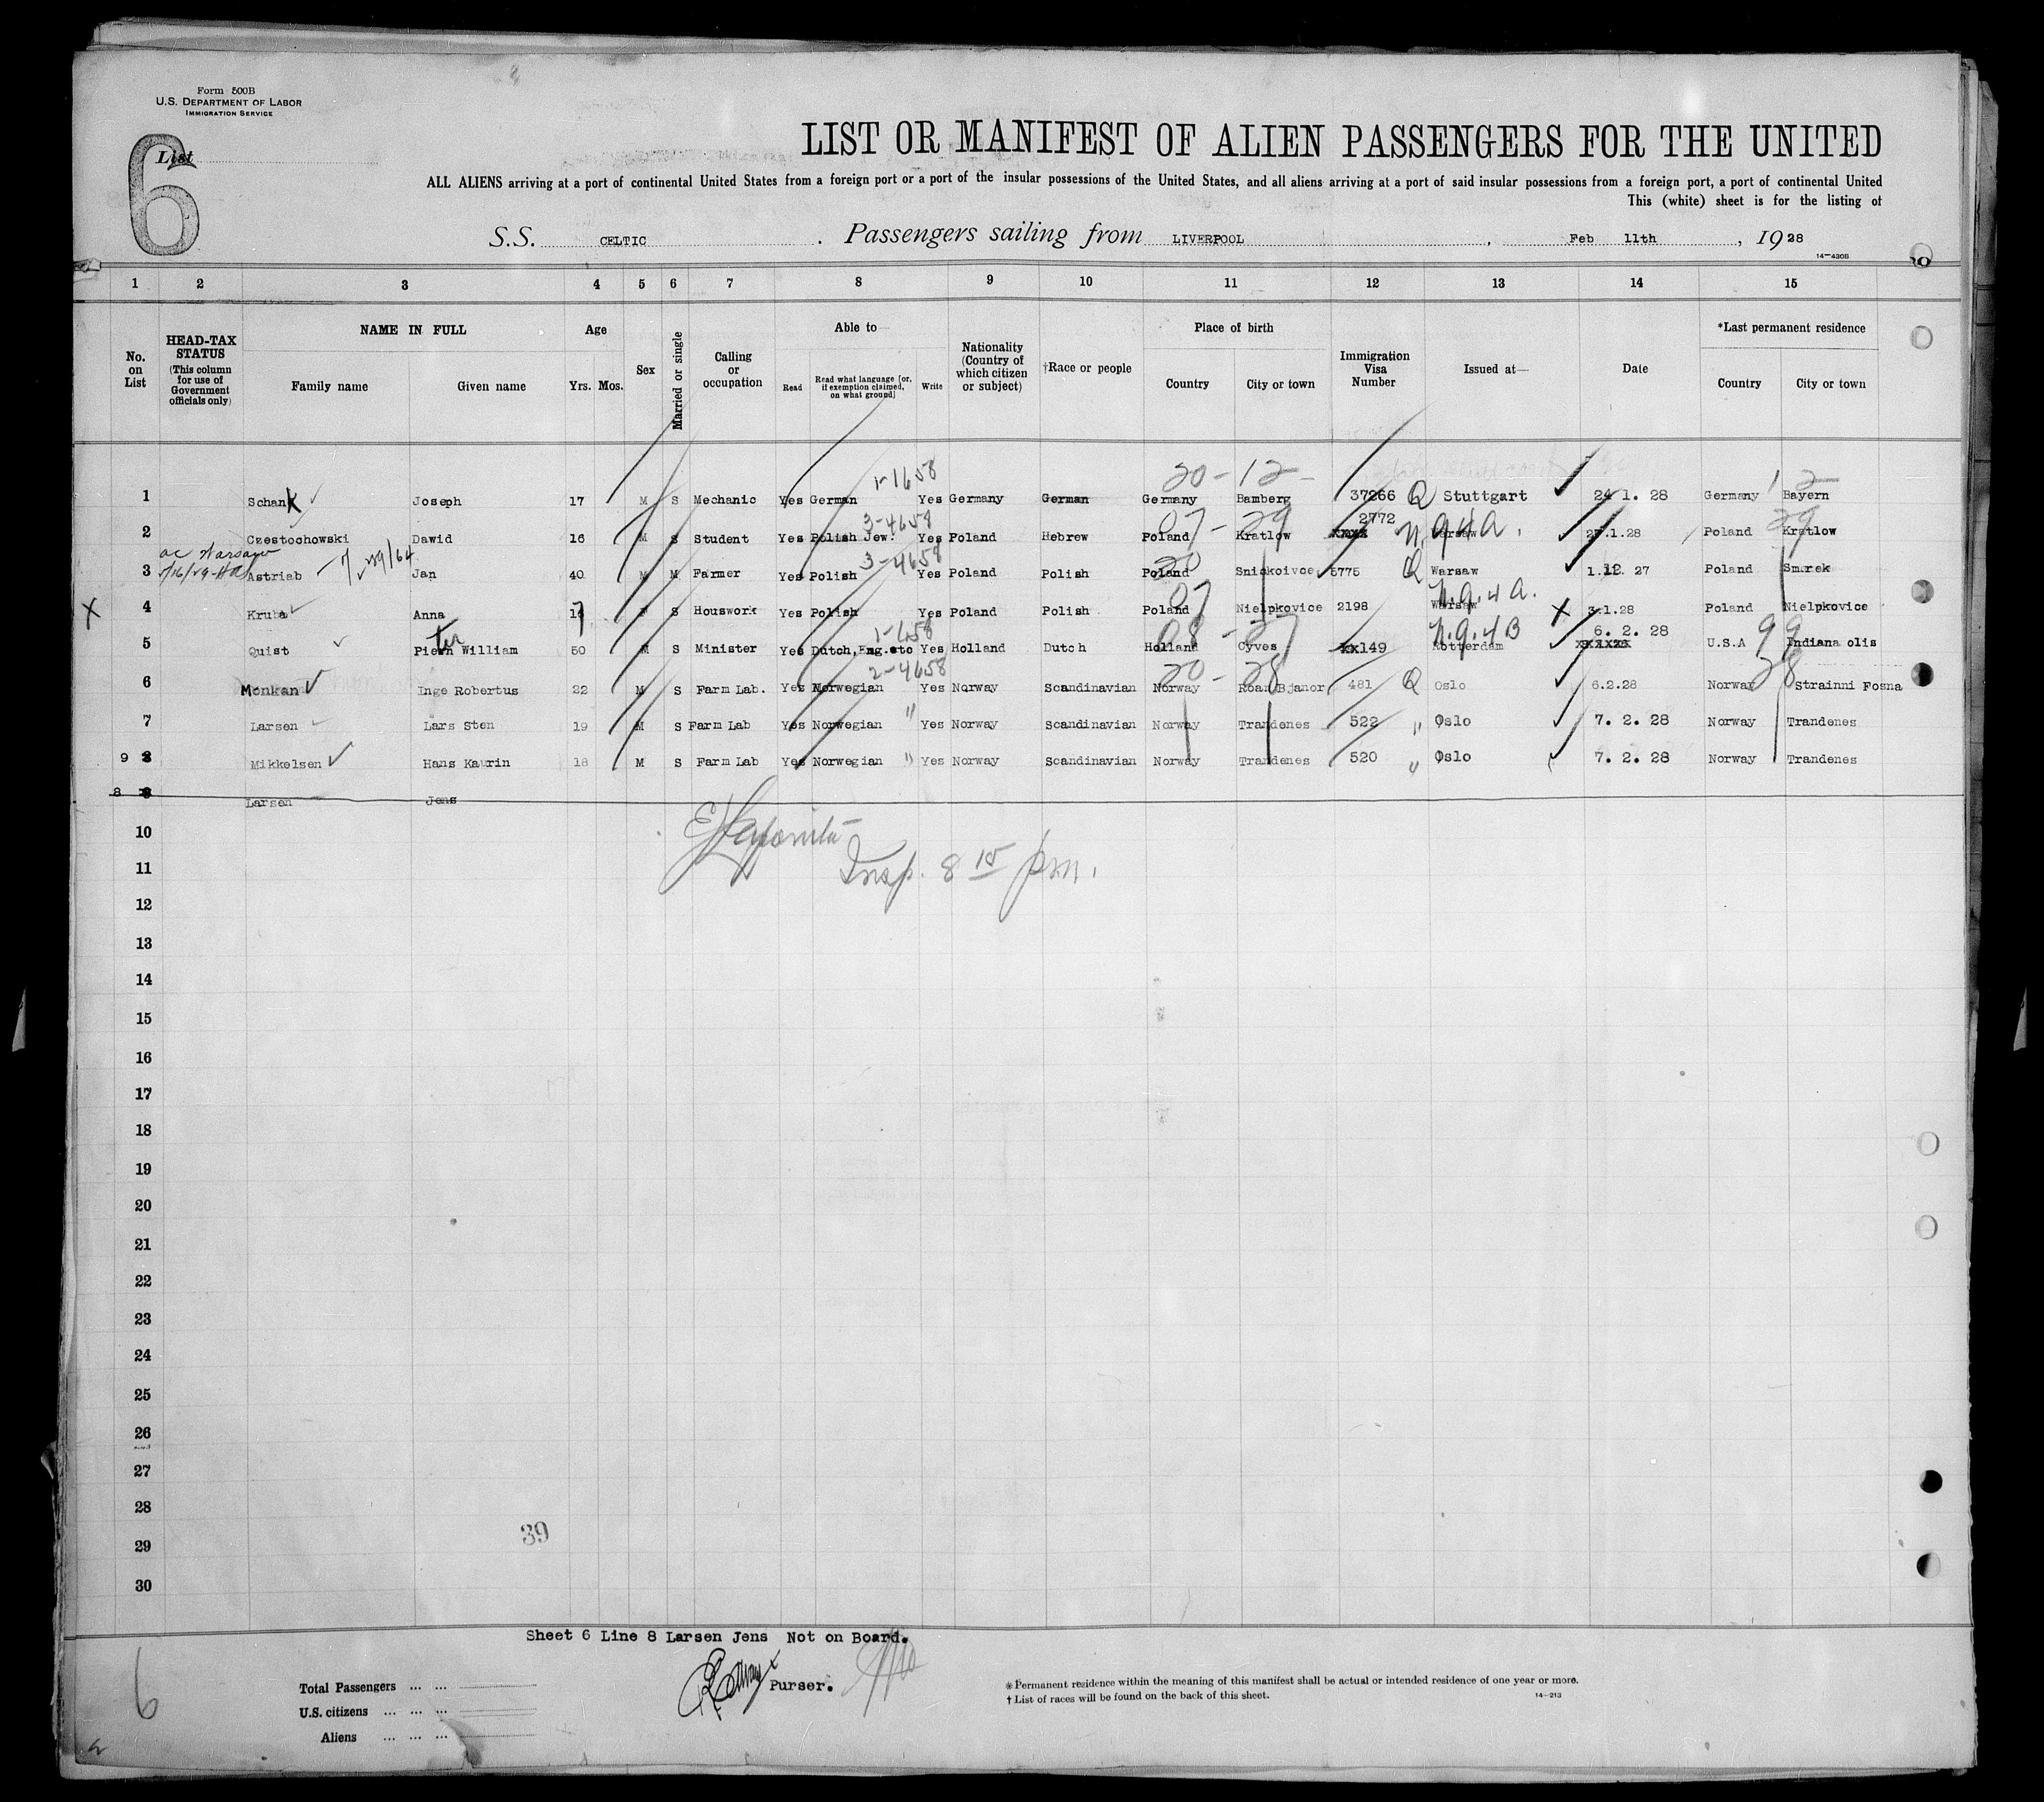 Form 500B
U.S. DEPARTMENT OF LABOR
IMMIGRATION SERVICE
List
6
LIST OR MANIFEST OF ALIEN PASSENGERS FOR THE UNITED
ALL ALIENS arriving at a port of continental United States from a foreign port or a port of the insular possessions of the United States, and all aliens arriving at a port of said insular possessions from a foreign port, a port of continental United
This (white) sheet is for the listing of
S.S. CELTIC . Passengers sailing from LIVERPOOL , Feb 11th , 1928
14-430B
1 2 3 4 5 6 7 8 9 10 11 12 13 14 15
No. on List
HEAD-TAX STATUS (This column for use of Government officials only)
NAME IN FULL
Family name Given name
Age
Yrs. Mos.
Sex
Married or single
Calling or occupation
Able to—
Read Read what language [or, if exemption claimed, on what ground] Write
Nationality (Country of which citizen or subject)
†Race or people
Place of birth
Country City or town
Immigration Visa Number
Issued at—
Date
*Last permanent residence
Country City or town
1-1658 20-12- 12
1 Schank Joseph 17 M S Mechanic Yes German Yes Germany German Germany Bamberg 37266 Q Stuttgart 24 1. 28 Germany Bayern
3-4658 07-29 2772 n.q4a. 29
2 Czestochowski Dawid 16 M S Student Yes Polish Jew. Yes Poland Hebrew Poland Kratlow xxxx Warsaw 25.1.28 Poland Kratlow
ac Warsaw
3-4658 20
3 Astriab Jan 40 M M Farmer Yes Polish Yes Poland Polish Poland Sniskoivce 5775 Q Warsaw 1.12. 27 Poland Smarek
07 n.q.4a.
X 4 Kruba Anna 17 F S Houswork Yes Polish Yes Poland Polish Poland Nielpkovice 2198 Warsaw X 3.1.28 Poland Nielpkovice
1-1658 08-27 n.q.4B 6. 2. 28 99
5 Quist Pieter William 50 M S Minister Yes Dutch,Eng.etc Yes Holland Dutch Holland Cyves xx149 Rotterdam xxxxxx U.S.A Indiana olis
2-4658 20-28 28
6 Monkan Inge Robertus 22 M S Farm Lab. Yes Norwegian Yes Norway Scandinavian Norway Roan Bjanor 481 Q Oslo 6.2.28 Norway Strainni Fosna
7 Larsen Lars Sten 19 M S Farm Lab Yes Norwegian " Yes Norway Scandinavian Norway Trandenes 522 " Oslo 7. 2. 28 Norway Trandenes
9 8 Mikkelsen Hans Kaurin 18 M S Farm Lab Yes Norwegian " Yes Norway Scandinavian Norway Trandenes 520 " Oslo 7. 2. 28 Norway Trandenes
8 9 Larsen Jens
10
Insp. 8 15 pm.
11
12
13
14
15
16
17
18
19
20
21
22
23
24
25
26
27
28
39
29
30
Sheet 6 Line 8 Larsen Jens Not on Board.
Purser.
6
Total Passengers ... ...
U.S. citizens ... ... ...
Aliens ... ... ...
* Permanent residence within the meaning of this manifest shall be actual or intended residence of one year or more.
† List of races will be found on the back of this sheet.
14-213